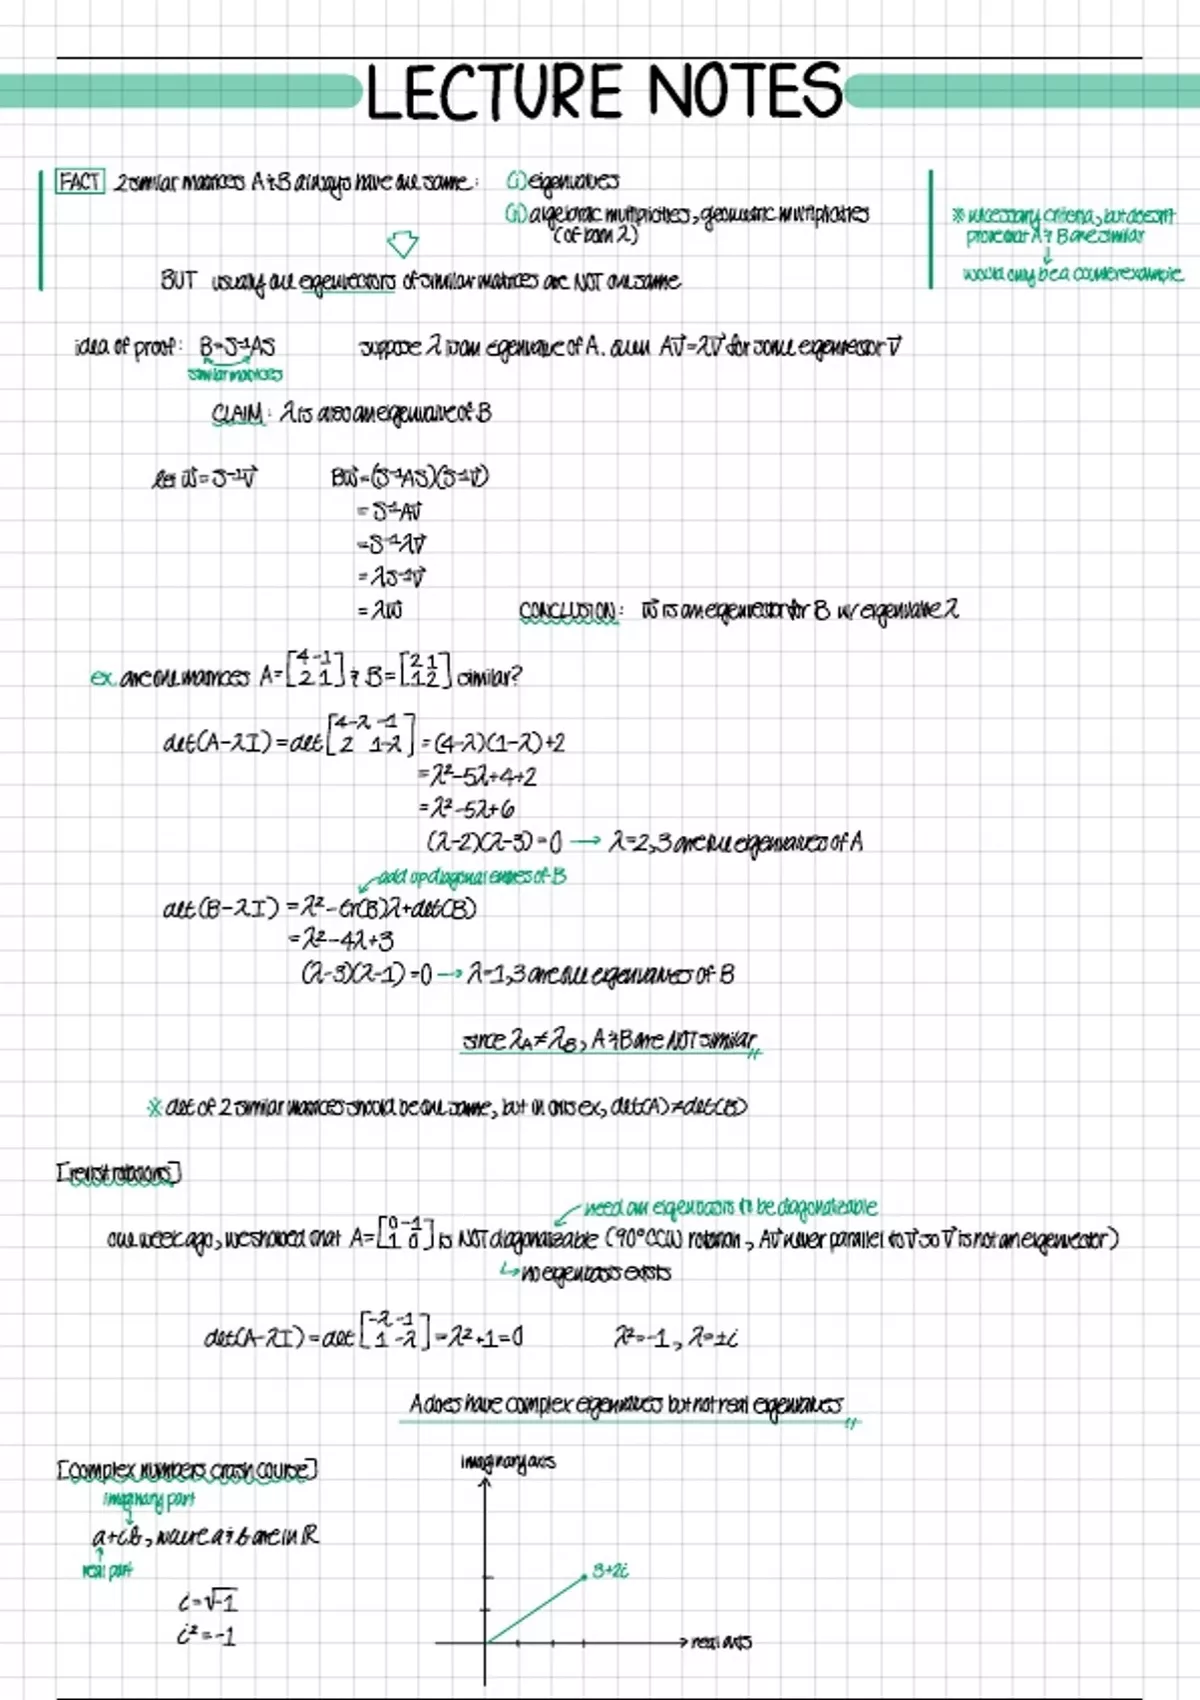 LECTURE NOTES
FACT 2 similar matrices A & B always have the same: (i) eigenvalues
(ii) algebraic multiplicities, geometric multiplicities
(of both λ)
※ necessary criteria, but doesn't
prove that A & B are similar
↓
would only be a counterexample
BUT usually the eigenvectors of similar matrices are NOT the same
idea of proof: B=S⁻¹AS suppose λ is an eigenvalue of A. then Av⃗=λv⃗ for some eigenvector v⃗
similar matrices
CLAIM: λ is also an eigenvalue of B
let w⃗=S⁻¹v⃗ Bw⃗=(S⁻¹AS)(S⁻¹v⃗)
=S⁻¹Av⃗
=S⁻¹λv⃗
=λS⁻¹v⃗
=λw⃗ CONCLUSION: w⃗ is an eigenvector for B w/ eigenvalue λ
ex. are the matrices A=[4 -1; 2 1] & B=[2 1; 1 2] similar?
det(A-λI)=det[4-λ -1; 2 1-λ]=(4-λ)(1-λ)+2
=λ²-5λ+4+2
=λ²-5λ+6
(λ-2)(λ-3)=0 → λ=2,3 are the eigenvalues of A
add up diagonal entries of B
det(B-λI)=λ²-tr(B)λ+det(B)
=λ²-4λ+3
(λ-3)(λ-1)=0 → λ=1,3 are the eigenvalues of B
since λA≠λB, A & B are NOT similar
※ det of 2 similar matrices should be the same, but in this ex, det(A)≠det(B)
[revisit rotations]
need an eigenbasis to be diagonalizable
one week ago, we showed that A=[0 -1; 1 0] is NOT diagonalizable (90° CCW rotation, Av⃗ never parallel to v⃗ so v⃗ is not an eigenvector)
↳ no eigenbasis exists
det(A-λI)=det[-λ -1; 1 -λ]=λ²+1=0 λ²=-1, λ=±i
A does have complex eigenvalues but not real eigenvalues
[complex numbers crash course]
imaginary part
a+ib, where a & b are in ℝ
real part
i=√-1
i²=-1
imaginary axis
3+2i
real axis